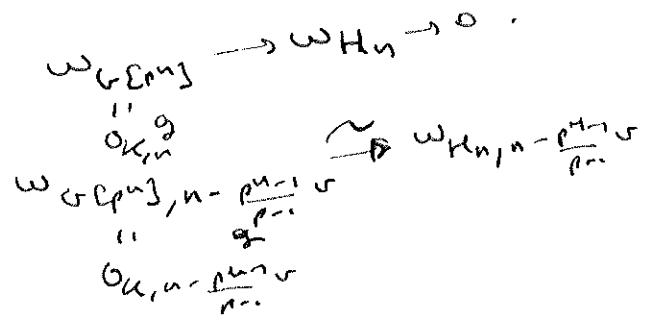 ω_{G[pⁿ]} → ω_{Hₙ} → 0 .
"
O_{K,n}^g
ω_{G[pⁿ], n - \frac{pⁿ-1}{p-1} v} \xrightarrow{∼} ω_{Hₙ, n - \frac{pⁿ-1}{p-1} v}
"
O_{K, n - \frac{pⁿ-1}{p-1} v}^g